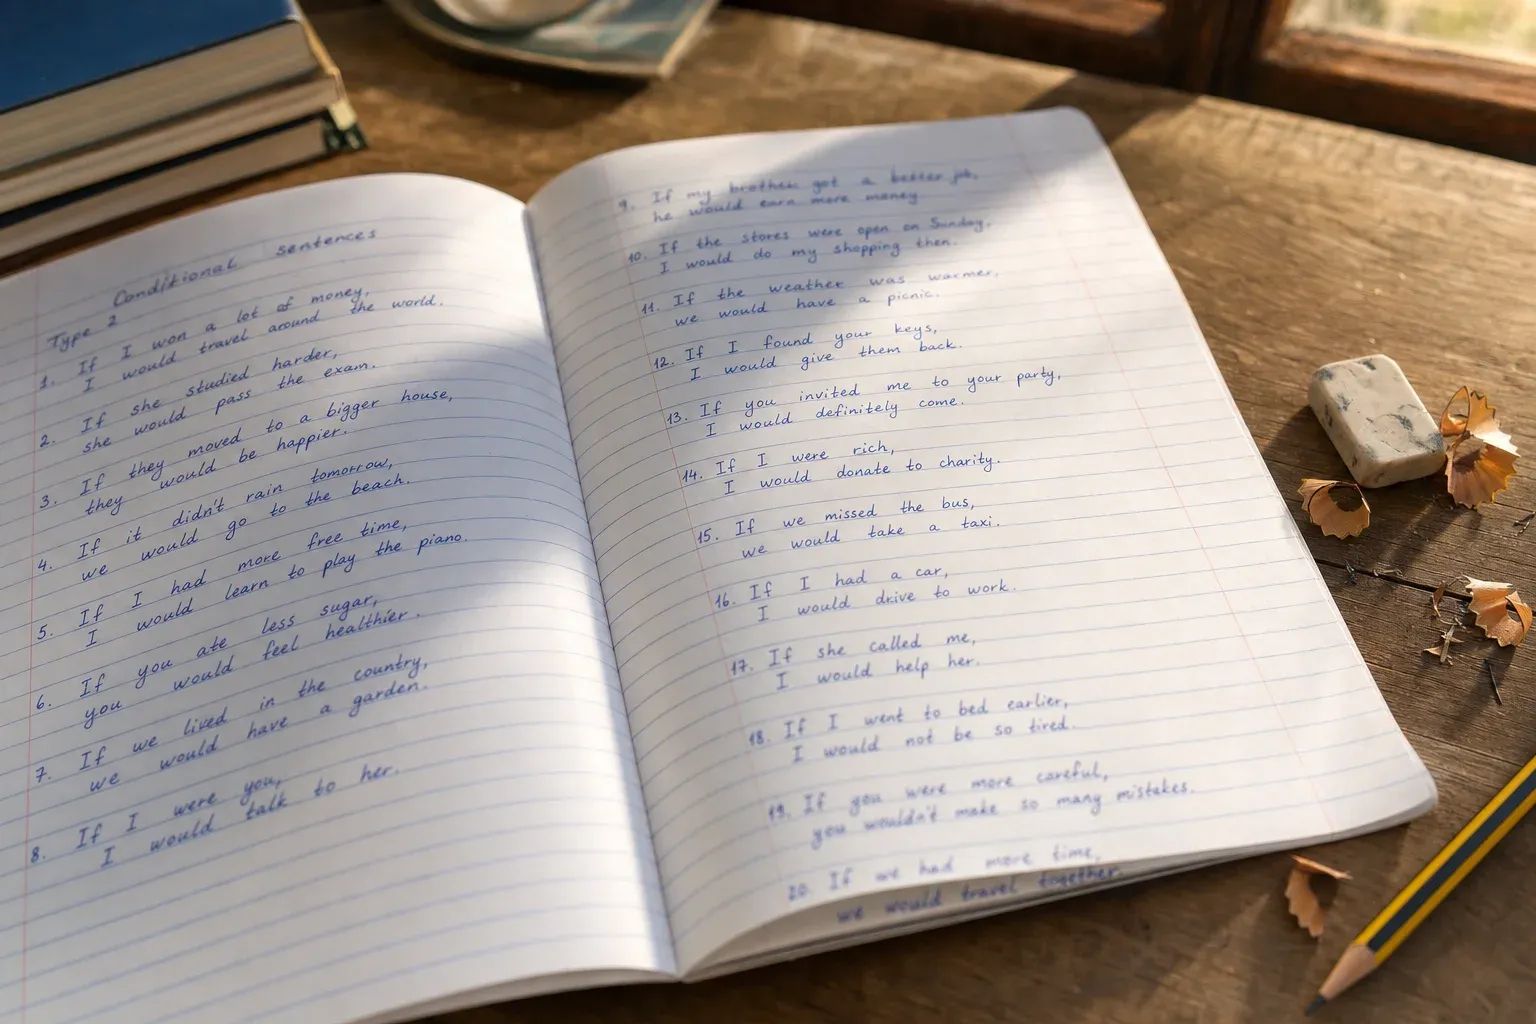 Conditional sentences
Type 2
1. If I won a lot of money,
I would travel around the world.
2. If she studied harder,
she would pass the exam.
3. If they moved to a bigger house,
they would be happier.
4. If it didn't rain tomorrow,
we would go to the beach.
5. If I had more free time,
I would learn to play the piano.
6. If you ate less sugar,
you would feel healthier.
7. If we lived in the country,
we would have a garden.
8. If I were you,
I would talk to her.
9. If my brother got a better job,
he would earn more money
10. If the stores were open on Sunday,
I would do my shopping then.
11. If the weather was warmer,
we would have a picnic.
12. If I found your keys,
I would give them back.
13. If you invited me to your party,
I would definitely come.
14. If I were rich,
I would donate to charity.
15. If we missed the bus,
we would take a taxi.
16. If I had a car,
I would drive to work.
17. If she called me,
I would help her.
18. If I went to bed earlier,
I would not be so tired.
19. If you were more careful,
you wouldn't make so many mistakes.
20. If we had more time,
we would travel together.